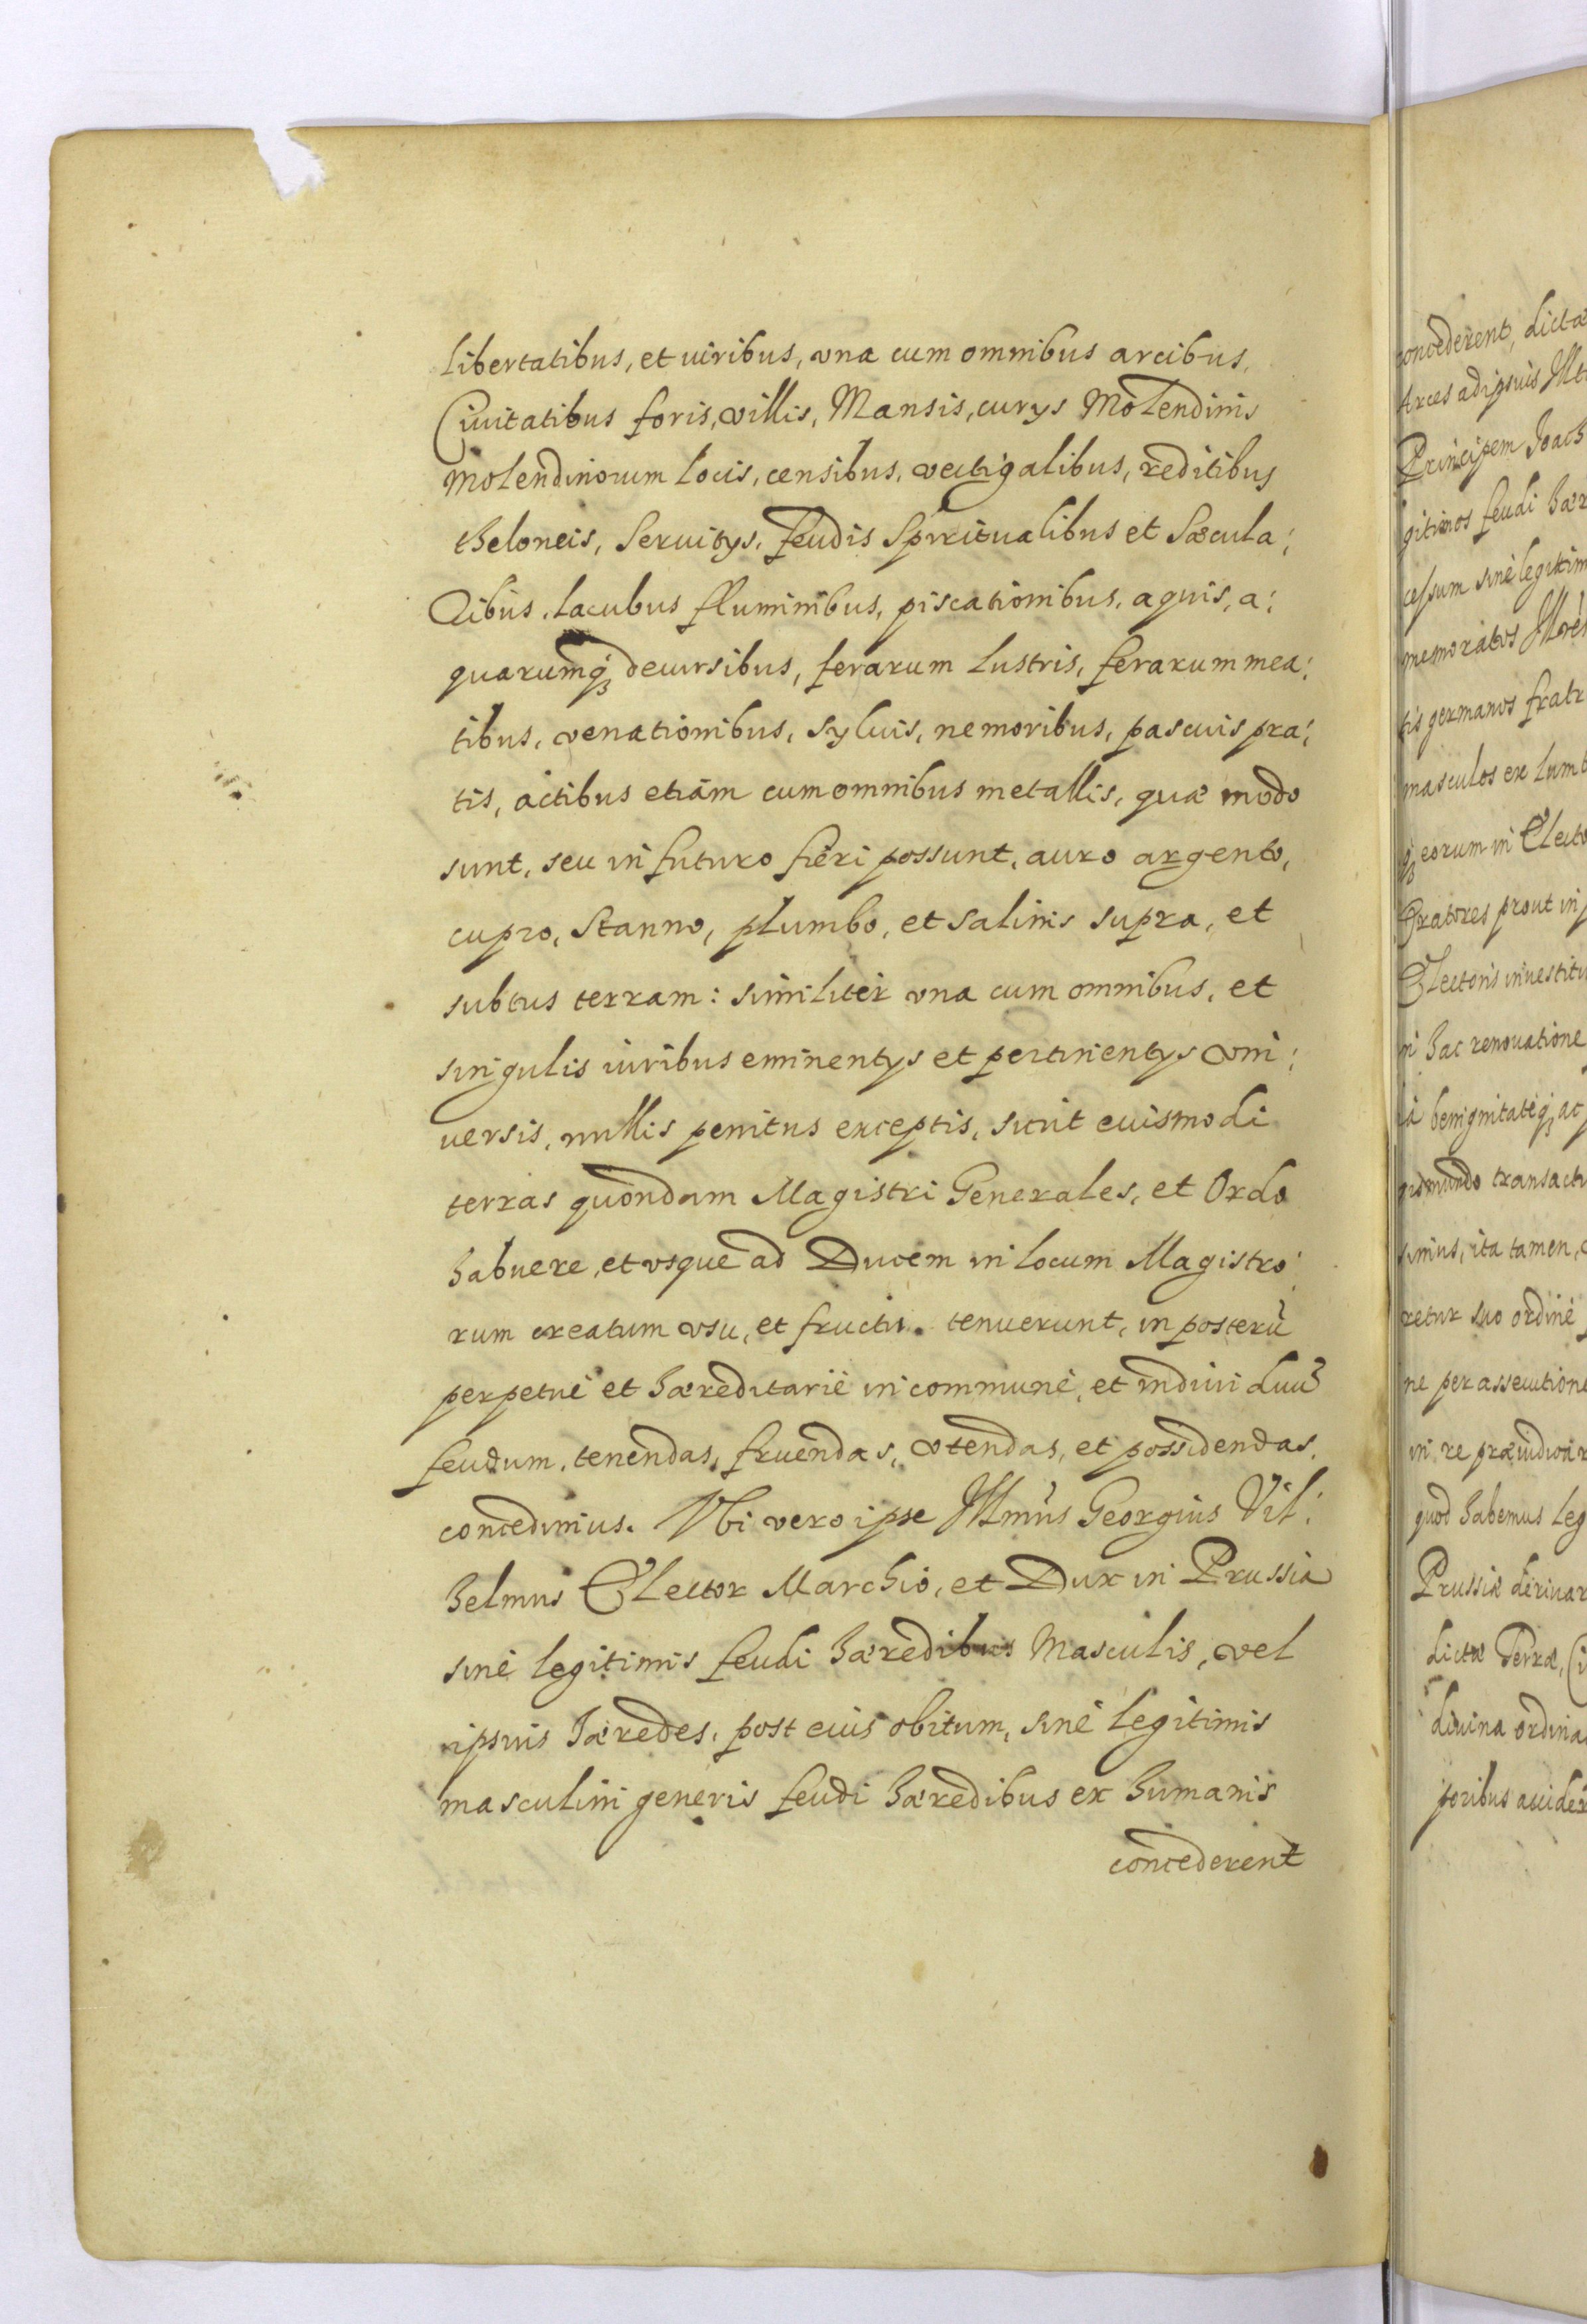 libertatibus, et viribus, vna cum omnibus arcibus,
Ciuitatibus foris, villis, Mansis, curys Molendinis
molendinorum locis, censibus, vectigalibus, reditibus
theloneis, Seruitys, feudis Spiritualibus et Sæcula:
ribus, lacubus fluminibus, piscationibus, aquis, a:
quarumq; decursibus, ferarum lustris, ferarum mea:
tibus, venationibus, syluis, nemoribus, pascuis pra:
tis, actibus etiam cum omnibus metallis, quæ modo
sunt, seu in futuro fieri possunt, auro argento,
cupro, Stanno, plumbo, et salinis supra, et
subtus terram: similiter vna cum omnibus, et
singulis iuribus eminentys et pertinentys vni:
uersis, nullis penitus exceptis, sicut euismodi
terras quondam Magistri Generales, et Ordo
habuere, et vsque ad Ducem in locum Magistro:
rum creatum vsu, et fructu. tenuerunt, in posterũ
perpetuè et hæreditariè in communè, et indiuiduũ
feudum, tenendas, fruendas, vtendas, et possidendas,
concedimus. Vbi vero ipse Illmus Georgius Vil:
helmus Elector Marchio, et Dux in Prussia
sinè legitimis feudi hæredibus Masculis, vel
ipsius hæredes, post eius obitum, sinè legitimis
masculini generis feudi hæredibus ex humanis
concederent
concederent, dictæ
Arces ad ipsius
Principem Joach
gitimos feudi hær
cessum sinè legitim
memoratos
tis germanos fratr
masculos ex lumb
q; eorum in Electo
Oratores prout in
Electoris inuestitu
in hac renouatione
benignitateq; ac
gismundo transact
simus, ita tamen,
retur suo ordinè
ne per assecutione
in re præiudicia
quod habemus leg
Prussiæ deriuar
dictæ Terræ, Ci
diuina ordina
poribus accider